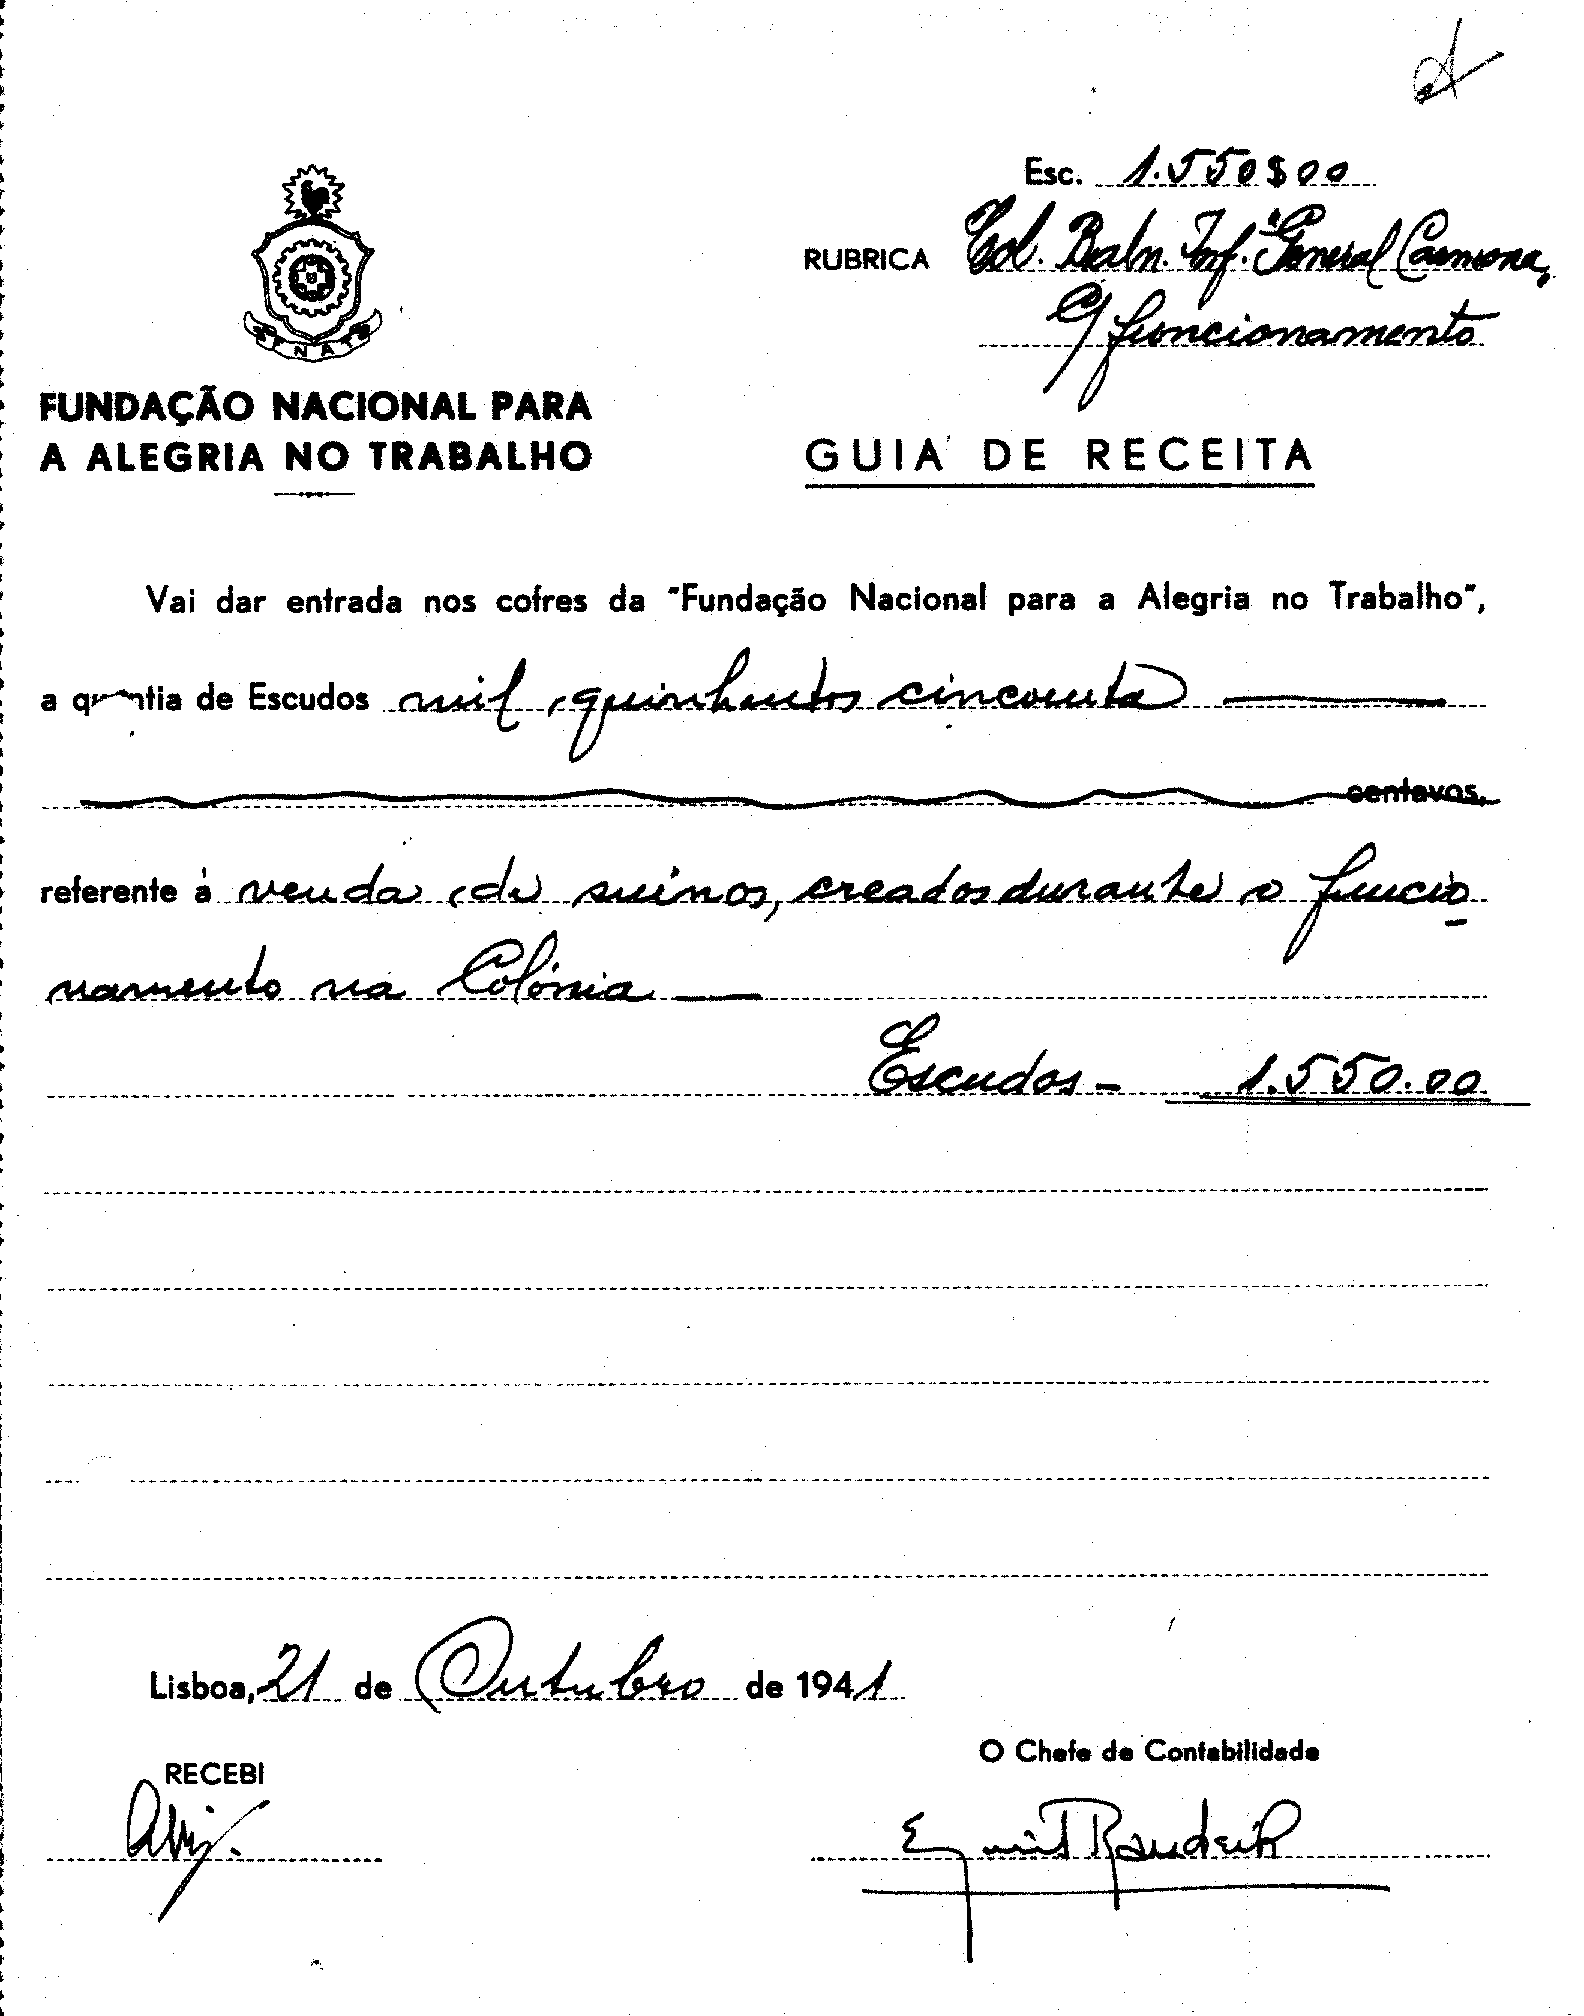 Esc. 1.550$00
RUBRICA Col. Baln. Inf. "General Carmona,
c/ funcionamento
FNAT
FUNDAÇÃO NACIONAL PARA
A ALEGRIA NO TRABALHO
GUIA DE RECEITA
Vai dar entrada nos cofres da "Fundação Nacional para a Alegria no Trabalho",
a quantia de Escudos mil quinhentos cincoenta
centavos,
referente à venda de suinos, creados durante o funcio
namento na Colónia —
Escudos - 1.550.00
Lisboa, 21 de Outubro de 1941
O Chefe da Contabilidade
RECEBI